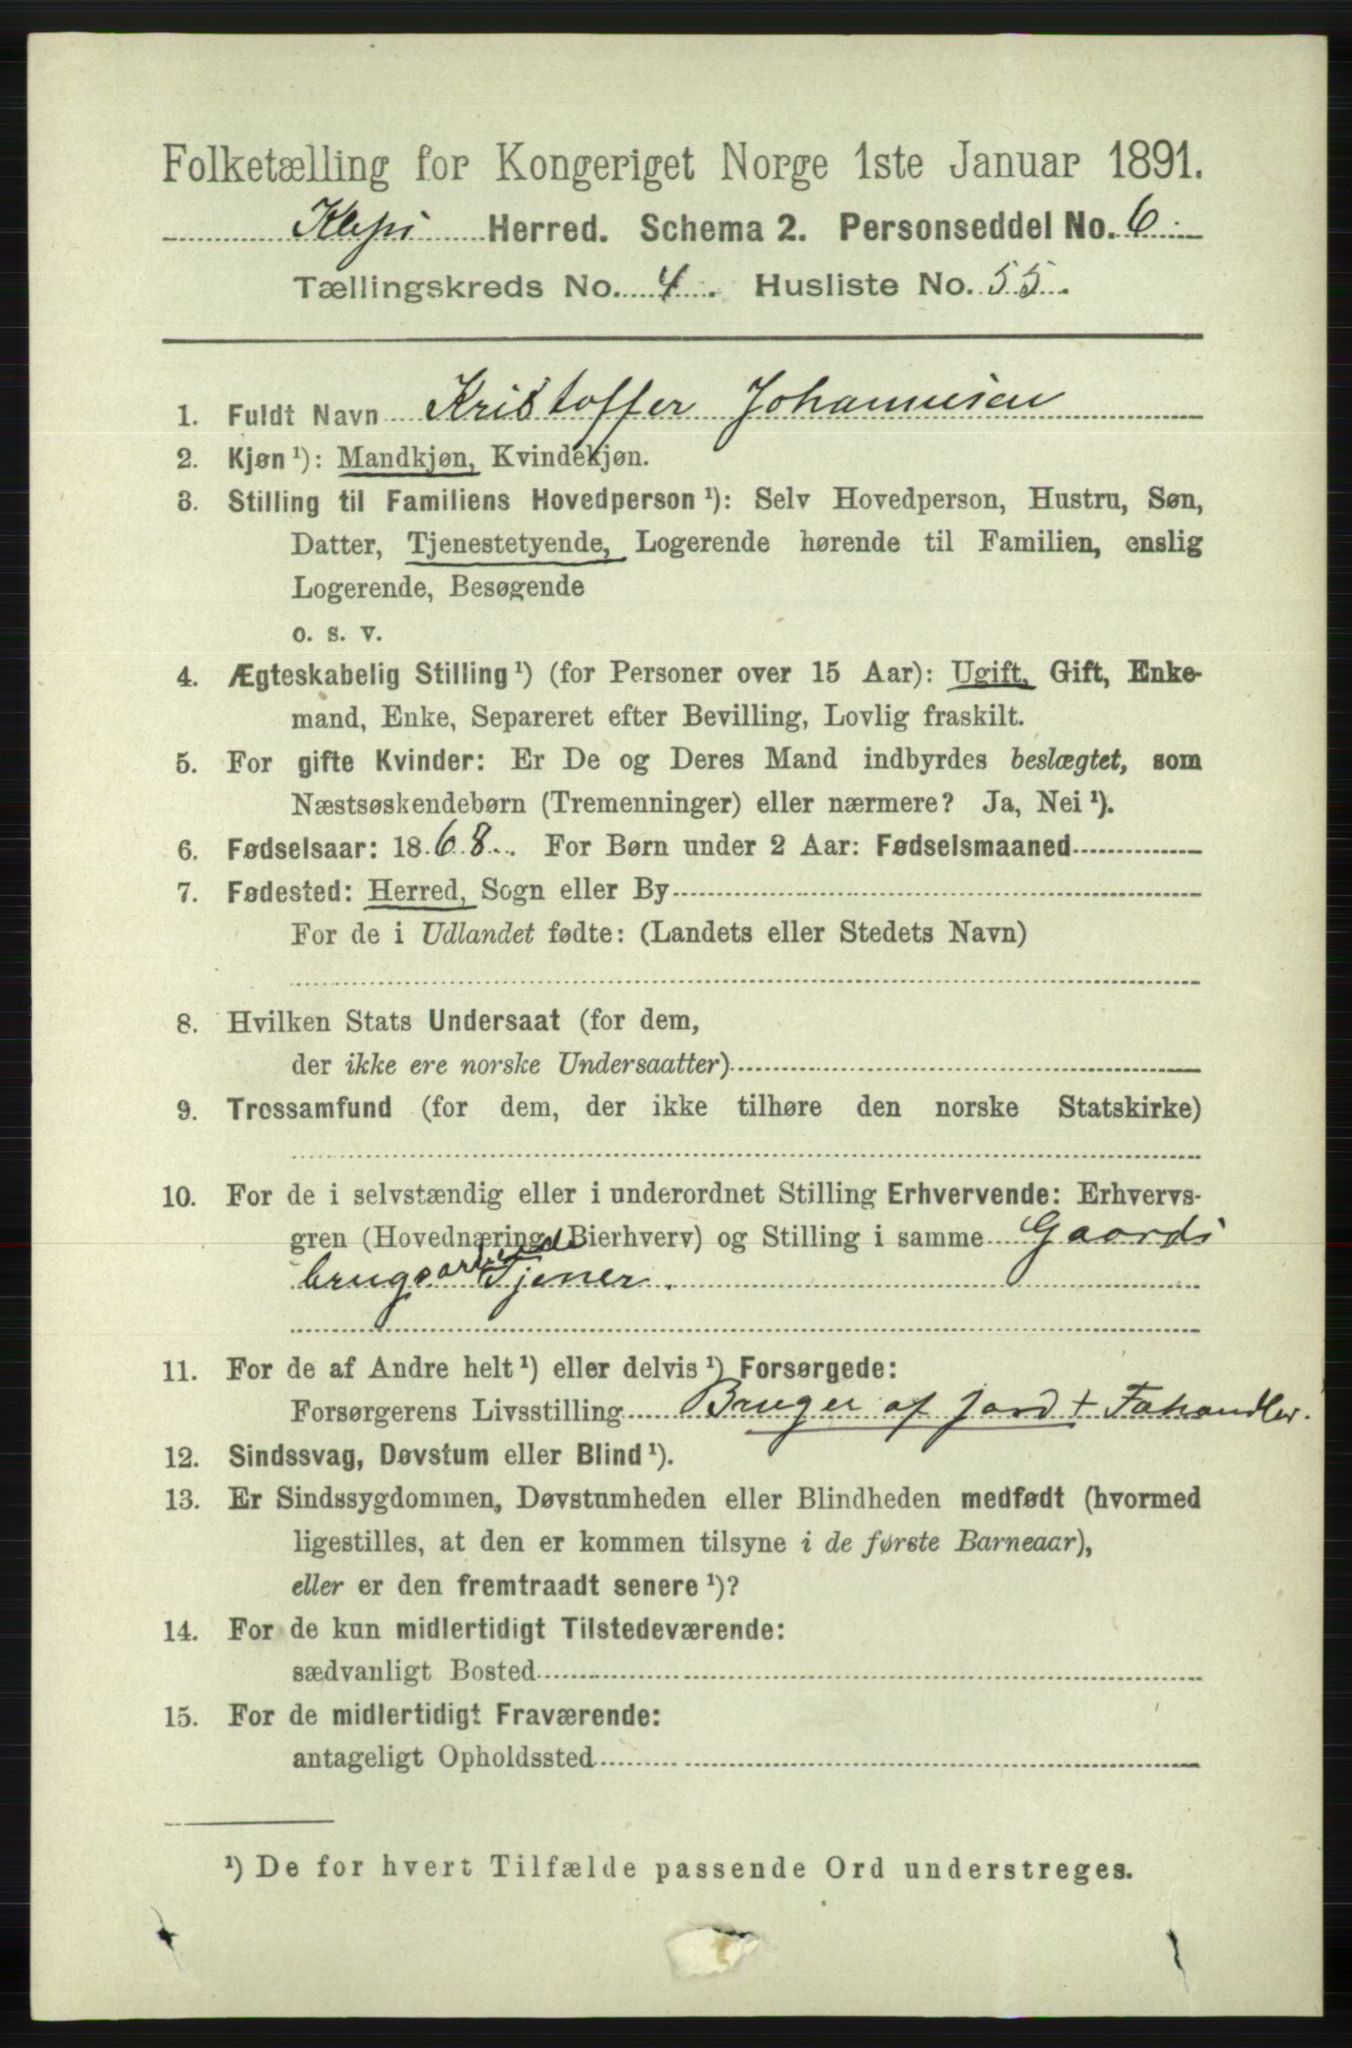 Folketælling for Kongeriget Norge 1ste Januar 1891.
Klepp Herred. Schema 2. Personseddel No. 6
Tællingskreds No. 4. Husliste No. 55.
1. Fuldt Navn Kristoffer Johannesen
2. Kjøn ¹): Mandkjøn, Kvindekjøn.
3. Stilling til Familiens Hovedperson ¹): Selv Hovedperson, Hustru, Søn,
Datter, Tjenestetyende, Logerende hørende til Familien, enslig
Logerende, Besøgende
o. s. v.
4. Ægteskabelig Stilling ¹) (for Personer over 15 Aar): Ugift, Gift, Enke-
mand, Enke, Separeret efter Bevilling, Lovlig fraskilt.
5. For gifte Kvinder: Er De og Deres Mand indbyrdes beslægtet, som
Næstsøskendebørn (Tremenninger) eller nærmere? Ja, Nei ¹).
6. Fødselsaar: 1868. For Børn under 2 Aar: Fødselsmaaned
7. Fødested: Herred, Sogn eller By
For de i Udlandet fødte: (Landets eller Stedets Navn)
8. Hvilken Stats Undersaat (for dem,
der ikke ere norske Undersaatter)
9. Trossamfund (for dem, der ikke tilhøre den norske Statskirke)
10. For de i selvstændig eller i underordnet Stilling Erhvervende: Erhvervs-
gren (Hovednæring, Bierhverv) og Stilling i samme Gaards
brugsarbeide Tjener.
11. For de af Andre helt ¹) eller delvis ¹) Forsørgede:
Forsørgerens Livsstilling Bruger af jord + Fæhandler.
12. Sindssvag, Døvstum eller Blind ¹).
13. Er Sindssygdommen, Døvstumheden eller Blindheden medfødt (hvormed
ligestilles, at den er kommen tilsyne i de første Barneaar),
eller er den fremtraadt senere ¹)?
14. For de kun midlertidigt Tilstedeværende:
sædvanligt Bosted
15. For de midlertidigt Fraværende:
antageligt Opholdssted
¹) De for hvert Tilfælde passende Ord understreges.